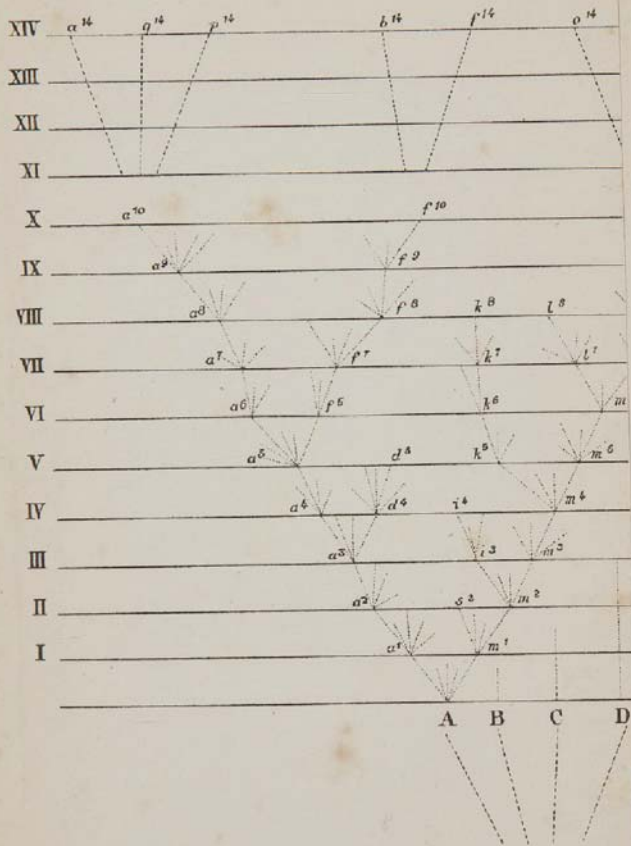 XIV a¹⁴ q¹⁴ p¹⁴ b¹⁴ f¹⁴ o¹⁴
XIII
XII
XI
X a¹⁰ f¹⁰
IX a⁹ f⁹
VIII a⁸ f⁸ k⁸ l⁸
VII a⁷ f⁷ k⁷ l⁷
VI a⁶ f⁶ k⁶ m
V a⁵ d⁵ k⁵ m⁵
IV a⁴ d⁴ i⁴ m⁴
III a³ i³ m³
II a² s² m²
I a¹ m¹
A B C D